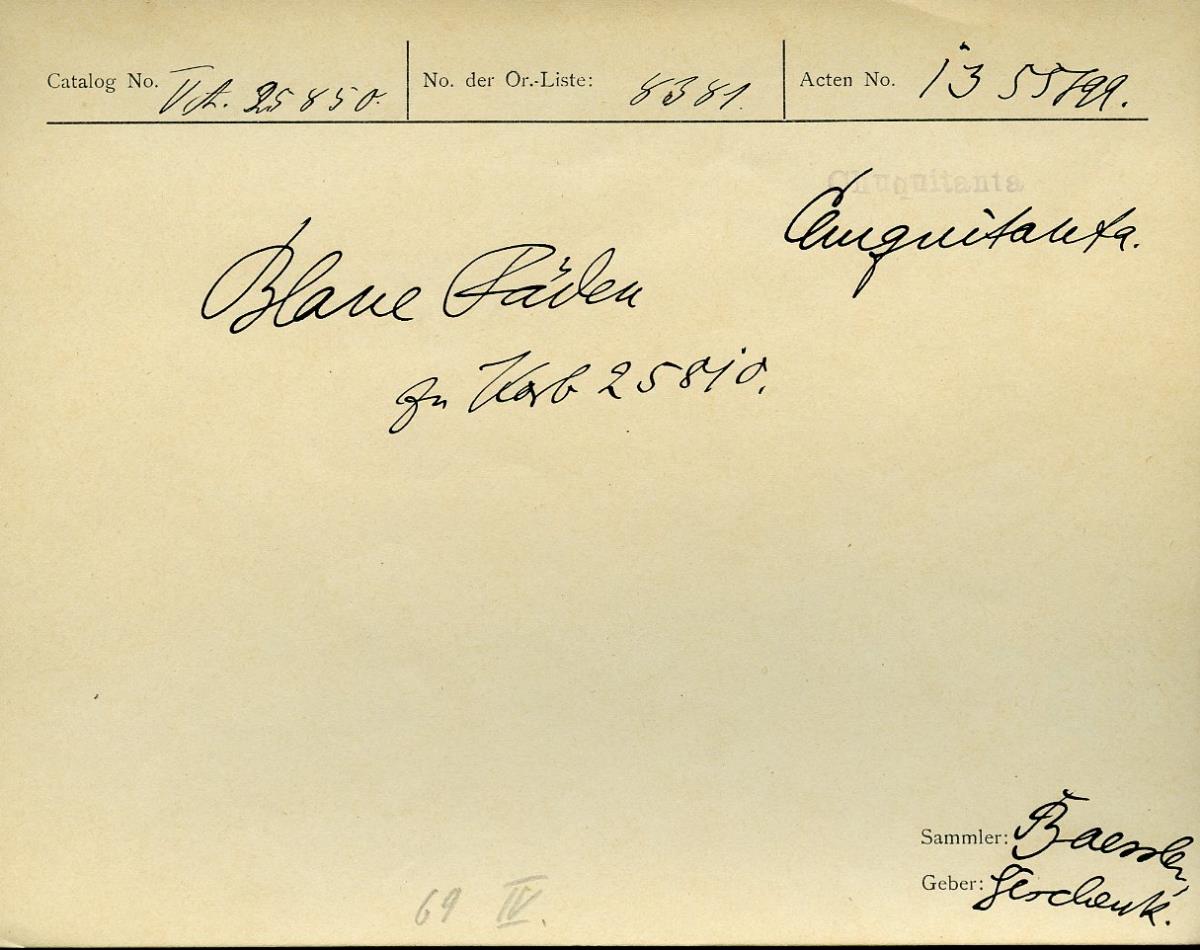 Catalog No. VA. 25850. No. der Or.-Liste: 8381. Acten No. 1355/99.
Chuquitanta
Chuquitanta.
Blaue Fäden
zu Korb 25810.
Sammler: Baessler,
Geber: Geschenk.
69 IV.